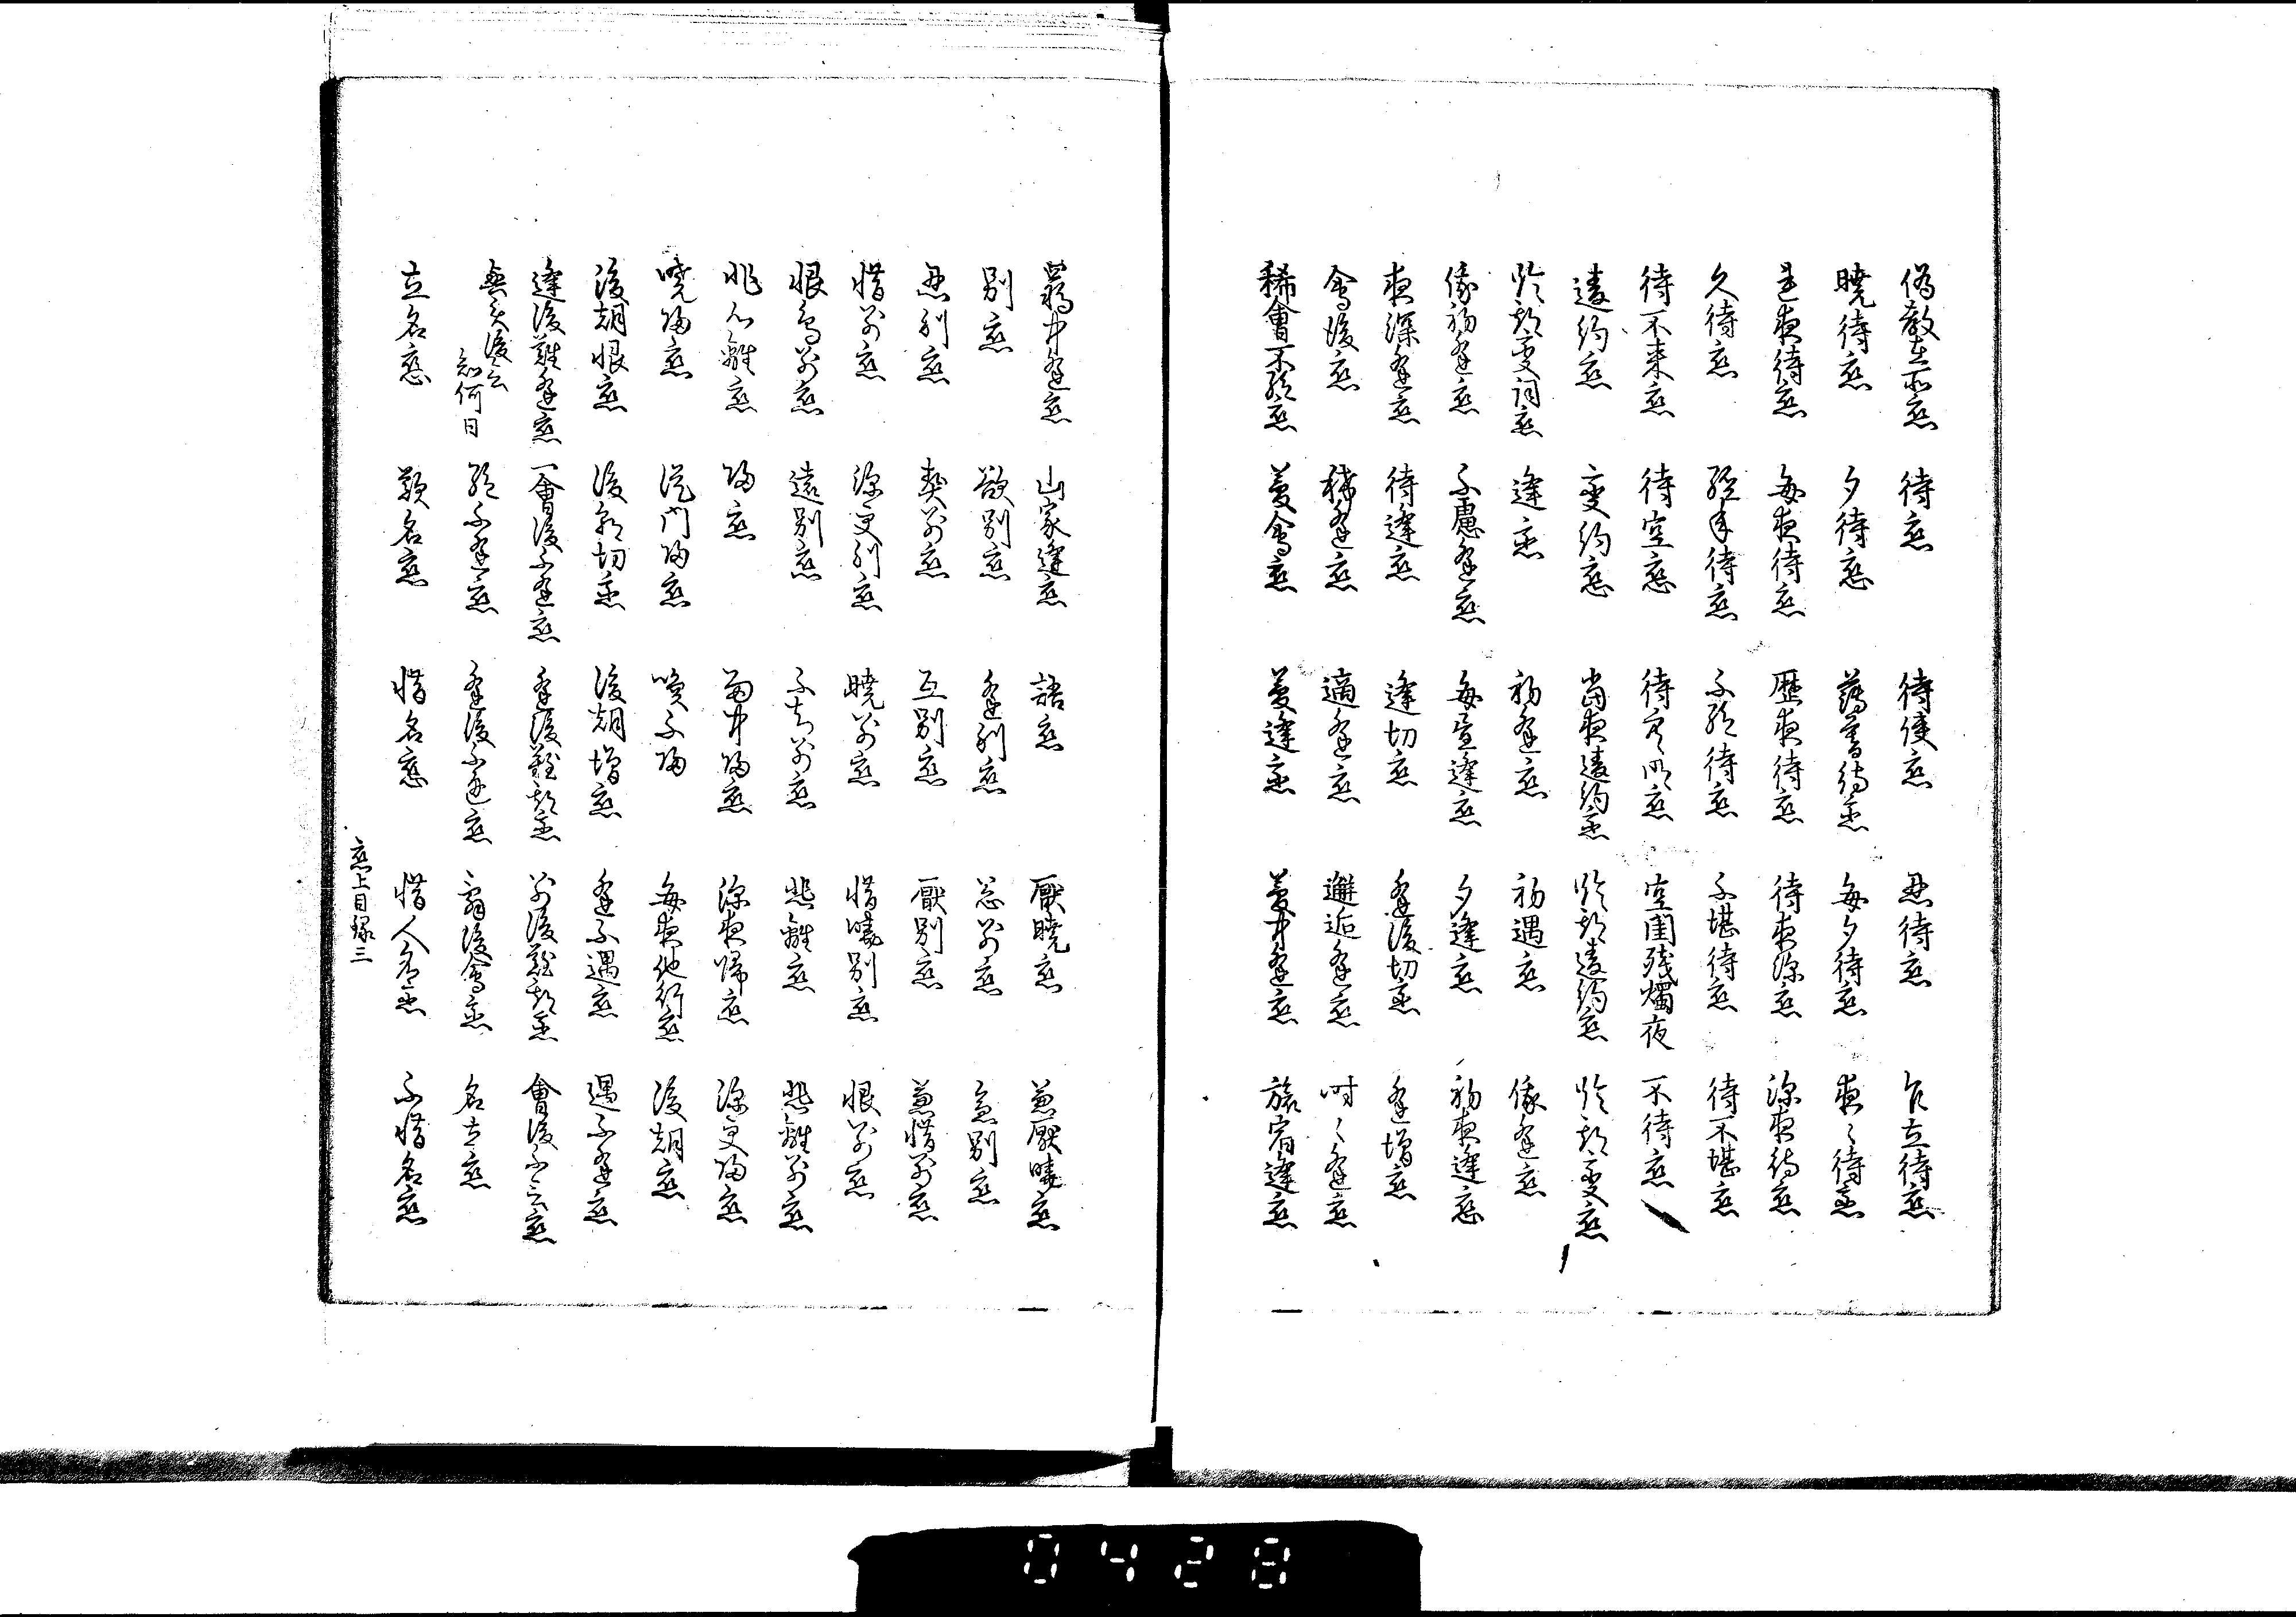 偽教在所恋 待恋 待便恋 忍待恋 乍立待恋
暁待恋 夕待恋 薄暮待恋 毎夕待恋 夜々待恋
是夜待恋 毎夜待恋 歴夜待恋 待夜深恋 深夜待恋
久待恋 経年待恋 不絶待恋 不堪待恋 待不堪恋
待不来恋 待空恋 待空明恋 空閨残燭夜 不待恋
違約恋 変約恋 当夜違約恋 臨期違約恋 臨期変恋
臨期変詞恋 逢恋 初逢恋 初遇恋 俄逢恋
俄初逢恋 不慮逢恋 毎宵逢恋 夕逢恋 初夜逢恋
夜深逢恋 待逢恋 逢切恋 逢後切恋 逢増恋
会後恋 稀逢恋 適逢恋 邂逅逢恋 時々逢恋
稀會不絶恋 夢会恋 夢逢恋 夢中逢恋 旅宿逢恋
羇中逢恋 山家逢恋 語恋 厭暁恋 兼厭暁恋
別恋 欲別恋 逢別恋 忘別恋 急別恋
忍別恋 契別恋 互別恋 厭別恋 兼惜別恋
惜別恋 深更別恋 暁別恋 惜暁別恋 恨別恋
恨鳥別恋 遠別恋 不知別恋 悲離恋 悲離別恋
非心離恋 帰恋 雨中帰恋 深夜帰恋 深更帰恋
暁帰恋 従門帰恋 喚不帰 毎夜他行恋 後朝恋
後朝恨恋 後朝切恋 後朝増恋 逢不遇恋 遇不逢恋
逢後難逢恋 一會後不逢恋 逢後難期恋 別後難期恋 會後不言恋
無実後会
知何日 絶不逢恋 逢後不逢恋 名立恋
立名恋 歎名恋 惜名恋 惜人名恋 不惜名恋
恋上目録三
0428